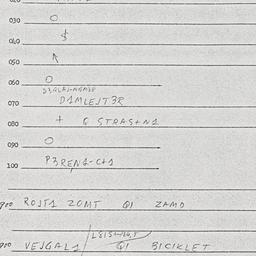 030 O
040 $
050 ↖
060 O
070 D1MLEJT3R
080 + Q STRAS+N1
090 O
100 P3REN1-C+1
900 ROJT1 ZOMT QI ZAMO
910 VEJGAL1 / QI BICIKLET